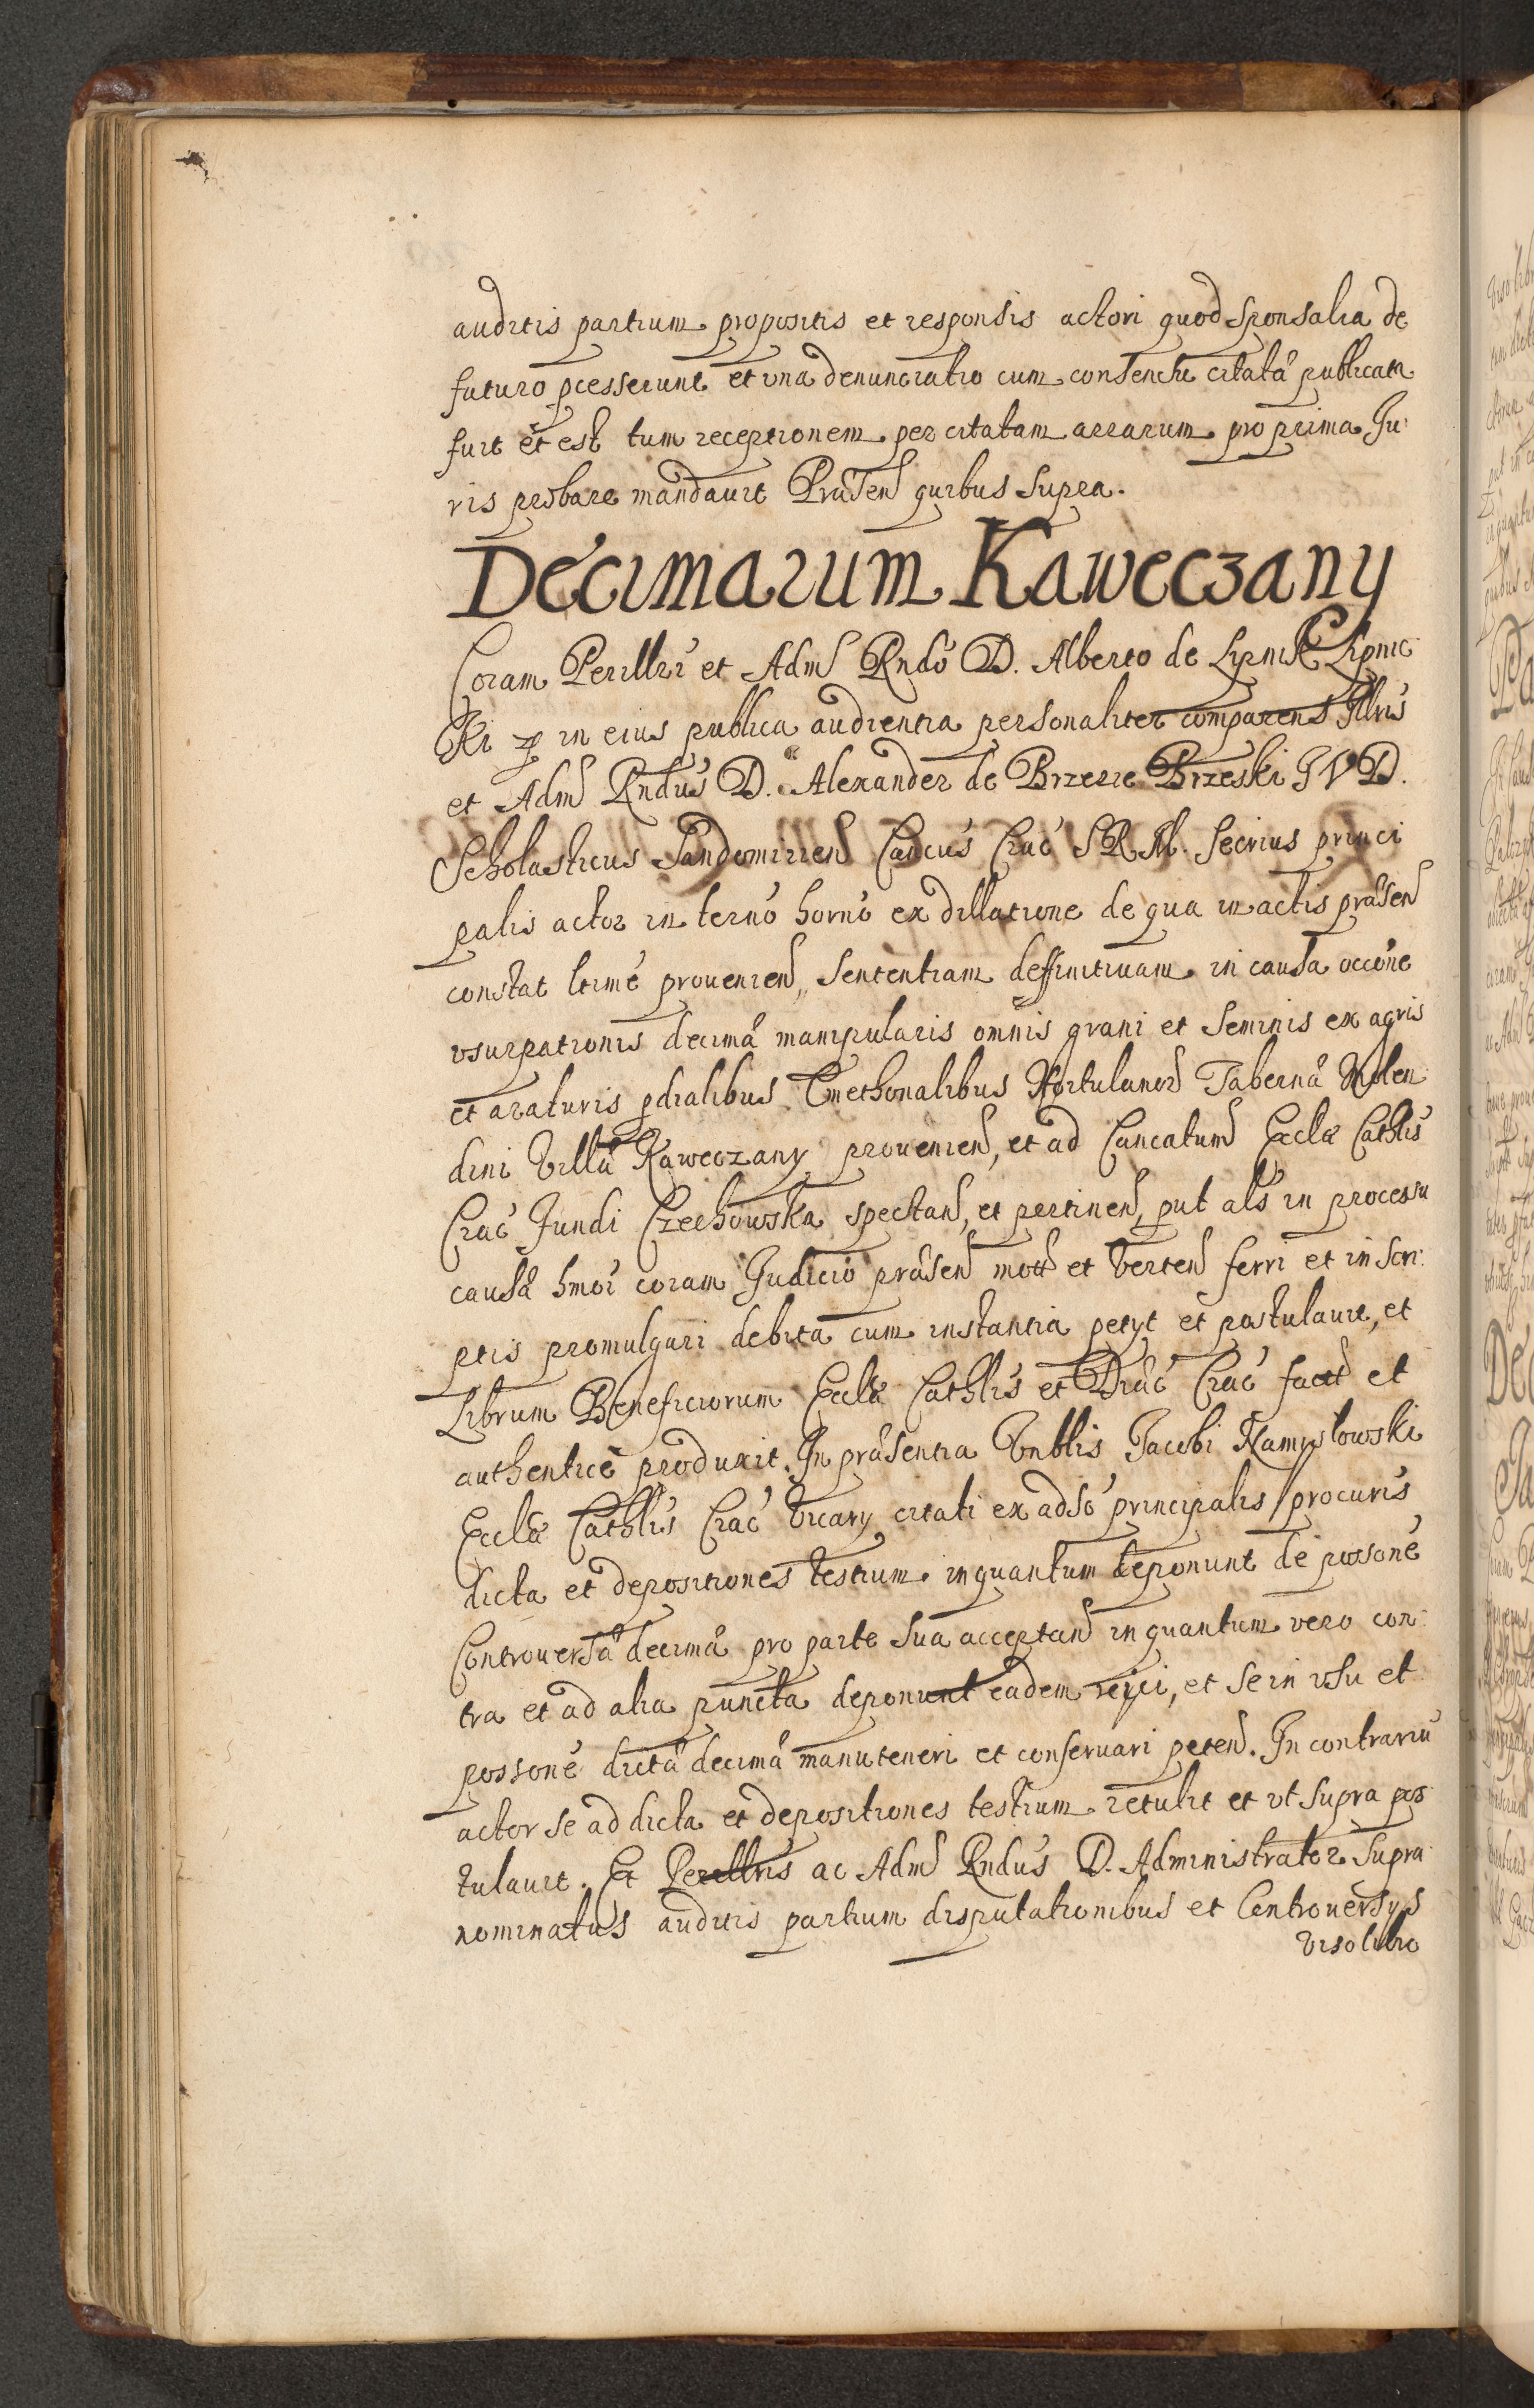 auditis partium propositis et responsis actori quod Sponsalia de
futuro pcesserunt et vna denunciatio cum consensu citatâ publicata
fuit et est tum receptionem per citatam arrarum pro prima Ju
ris probare mandauit Præsen quibus Supra.
Decimarum Kaweczany
Coram Perillri et Adm Rndo D. Alberto de Lipnik Lipnic
Ki in eius publica audientia personaliter comparens Illris
et Adm Rndus D. Alexander de Brzezie Brzeski J V D.
Scholasticus Sandomirien Cancus Crac S R M. Secrius princi
palis actor in terno horno ex dillatione de qua in actis præsen
constat ltime prouenien, Sententiam deffinitiuam in causa occone
vsurpationis decimæ manipularis omnis grani et Seminis ex agris
et araturis pdialibus Cmethonalibus Hortulanor Tabernæ Molen
dini Villæ Kaweczany prouenien, et ad Cancatum Ecclæ Cathlis
Crac Fundi Czechowska spectan, et pertinen, put als in processu
causæ hmoi coram Judicio præsen mott et Verten ferri et in Scri
ptis promulgari debita cum instantia petyt et postulauit, et
Librum Beneficiorum Ecclæ Cathlis et Diæc Crac fact et
authentice produxit. In præsentia Vnblis Jacobi Namyslowski
Ecclæ Cathlis Crac Vicary citati ex adso principalis procuris
dicta et depositiones testium inquantum deponunt de possone
Controuersæ decimæ pro parte Sua acceptan inquantum vero con
tra et ad alia puncta deponunt eadem reyci, et Se in vsu et
possone dictæ decimæ manuteneri et conseruari peten. In contrariu
actor Se ad dicta et depositiones testium retulit et vt Supra pos
tulauit. Et Perillris ac Adm Rndus D. Administrator Supra
nominatus auditis partium disputationibus et Controuersys
Viso libro